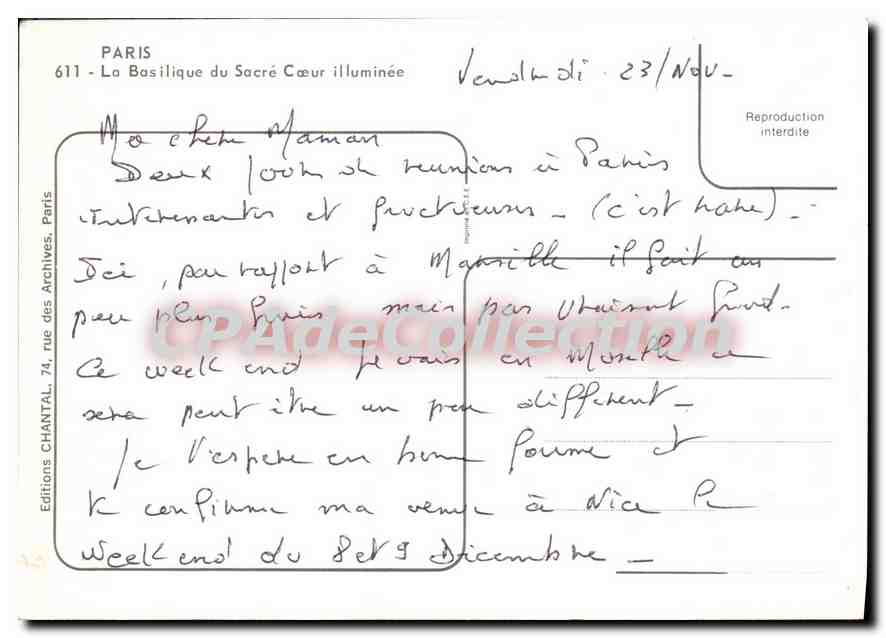 PARIS
611 - La Basilique du Sacré Cœur illuminée
Vendredi 23/Nov -
Reproduction
interdite
Ma chère Maman
Deux jours de réunions à Paris
intéressantes et fructueuses - (c'est rare) -
Ici, par rapport à Marseille il fait un
peu plus frais mais pas vraiment froid -
Ce week end je vais en Moselle ce
sera peut être un peu différent -
Je t'espère en bonne forme et
te confirme ma venue à Nice le
week end du 8 et 9 Décembre -
Editions CHANTAL, 74, rue des Archives, Paris
CPAdeCollection